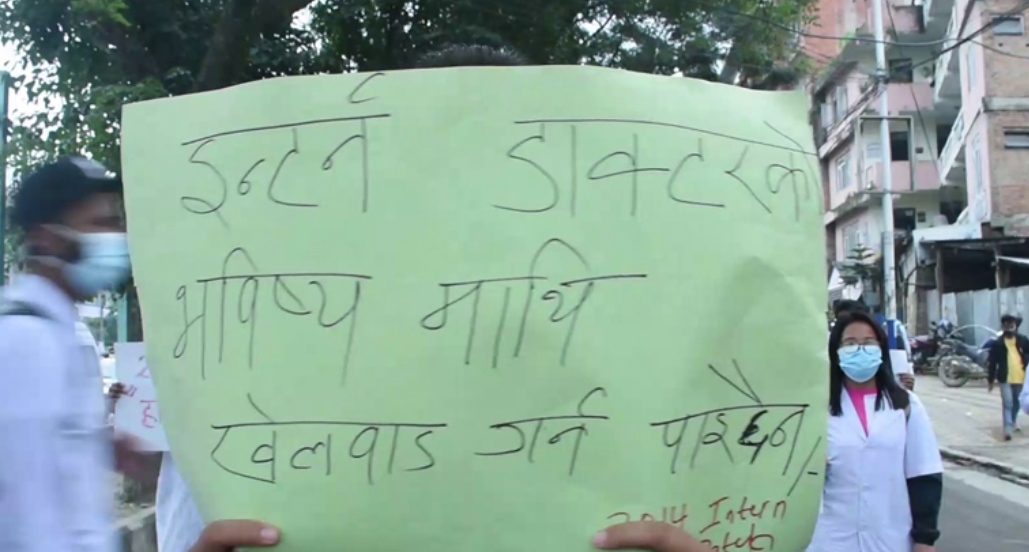 इन्टर्न डाक्टरको
भविष्य माथि
खेलवाड गर्न पाईदैन/-
2014 Intern